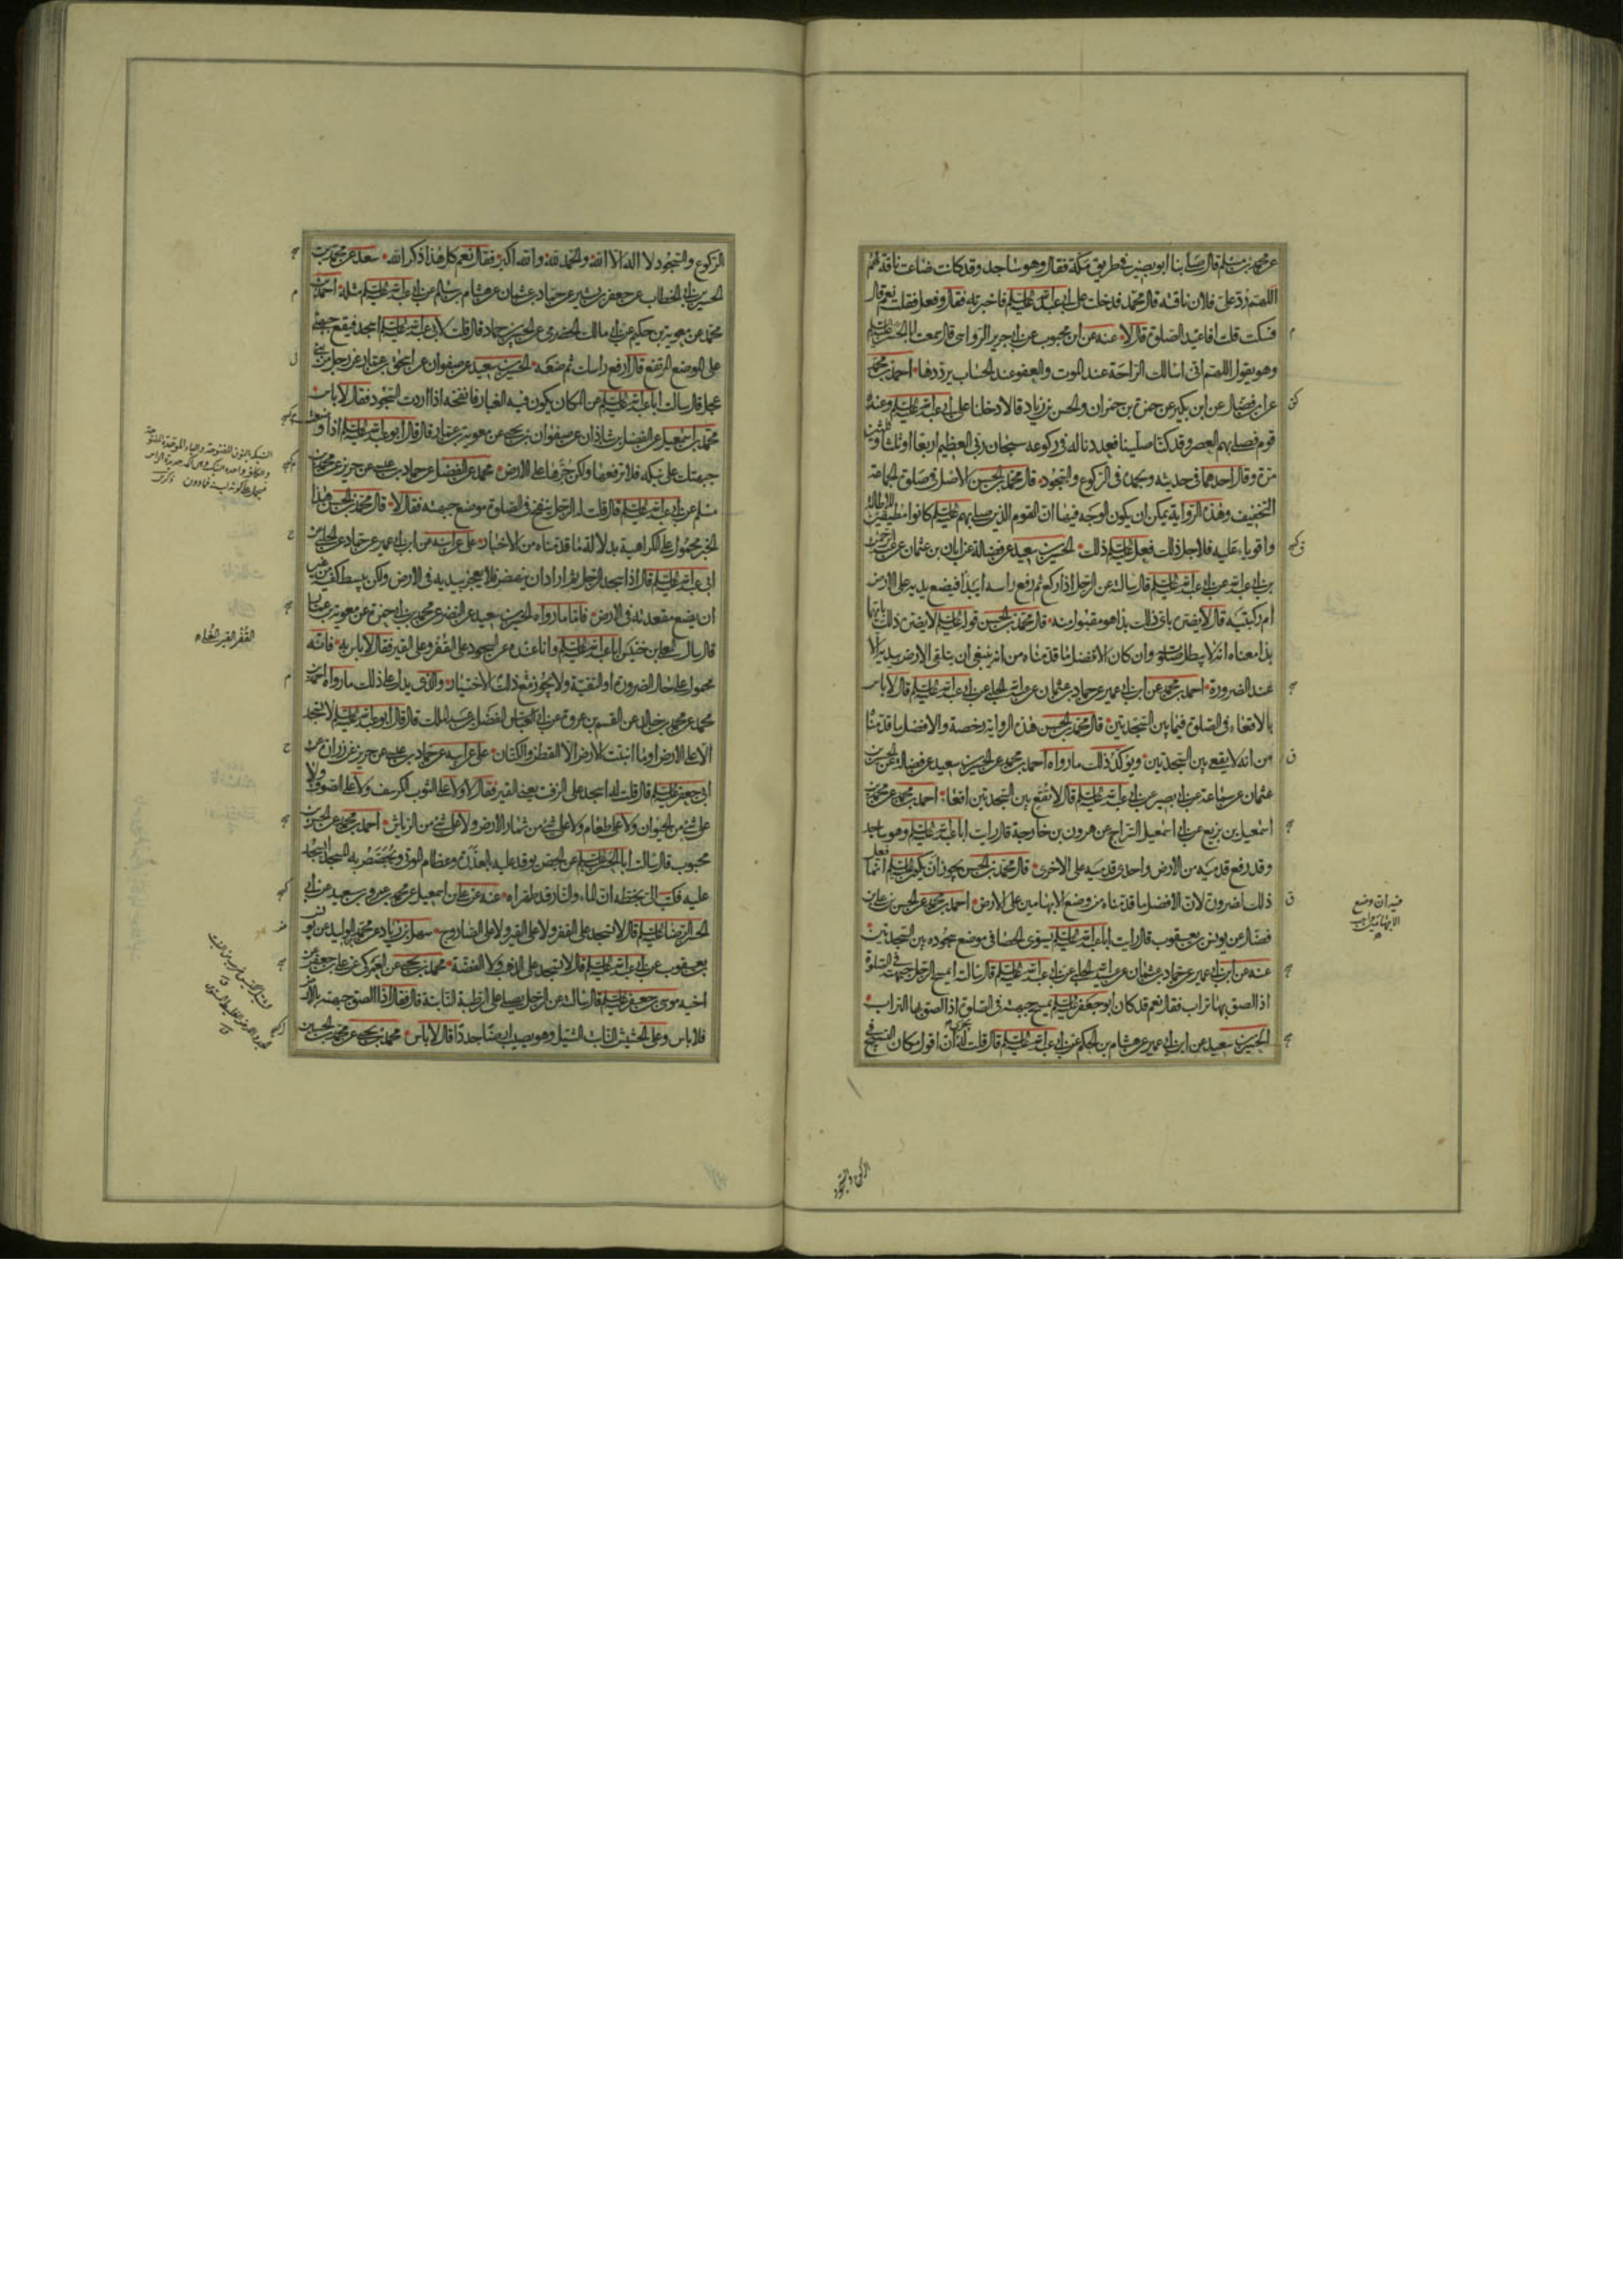 عن محمد بن مسلم قال صلى بنا ابو بصير في طريق مكة فقال وهو ساجد وقد كانت ضاعت ناقة لهم
اللهم رد على فلان ناقته قال محمد فدخلت على ابى عبد الله عليه السلم فاخبرته فقال وفعل فقلت نعم قال
فسكت قلت افاعيد الصلوة قال لا عنه عن ابن محبوب عن ابى جرير الرواسى قال سمعت ابا الحسن عليه السلم
وهو يقول اللهم انى اسالك الراحة عند الموت والعفو عند الحساب يرددها احمد بن محمد
عن ابن فضال عن ابن بكير عن حمزة بن حمران والحسن بن زياد قالا دخلنا على ابى عبد الله عليه السلم وعنده
قوم فصلى بهم العصر وقد كنا صلينا فعددنا له فى ركوعه سبحان ربى العظيم اربعا او ثلثا وثلثين
مرة وقال احدهما فى حديثه وبحمده فى الركوع والسجود قال محمد بن الحسن الاصل فى صلوة الجماعة
التخفيف وهذه الرواية يمكن ان يكون الوجه فيها ان القوم الذين صلى بهم عليه السلم كانوا مطيقين للاطالة
واقوياء عليه فلاجل ذلك فعل عليه السلم ذلك الحسين بن سعيد عن فضالة عن ابان بن عثمان عن عبد الرحمن
بن ابى عبد الله عن ابى عبد الله عليه السلم قال سالته عن الرجل اذا ركع ثم رفع راسه ايبدا فيضع يديه على الارض
ام ركبتيه قال لا يضره باى ذلك بدا هو مقبول منه قال محمد بن الحسن قوله عليه السلم لا يضره ذلك بايهما
بدا معناه انه لا يبطل صلوته وان كان الافضل ما قدمناه من انه ينبغى ان يتلقى الارض بيديه الا
عند الضرورة احمد بن محمد عن ابن ابى عمير عن حماد بن عثمان عن عبيد الله الحلبى عن ابى عبد الله عليه السلم قال لا باس
بالاقعاء فى الصلوة فيما بين السجدتين قال محمد بن الحسن هذه الرواية رخصة والافضل ما قدمنا
من انه لا يقعى بين السجدتين ويؤكد ذلك ما رواه احمد بن محمد عن الحسين بن سعيد عن فضالة عن الحسين بن
عثمان عن سماعة عن ابى بصير عن ابى عبد الله عليه السلم قال لا تقع بين السجدتين اقعاء احمد بن محمد عن محمد بن
اسمعيل بن بزيع عن ابى اسمعيل السراج عن هرون بن خارجة قال رايت ابا عبد الله عليه السلم وهو ساجد
وقد رفع قدميه من الارض واحدى قدميه على الاخرى قال محمد بن الحسن يجوز ان يكون عليه السلم انما فعل
ذلك لضرورة لان الافضل ما قدمناه من وضع الابهامين على الارض احمد بن محمد عن الحسن بن على بن
فضال عن يونس بن يعقوب قال رايت ابا عبد الله عليه السلم يسوى الحصا فى موضع سجوده بين السجدتين
عنه عن ابن ابى عمير عن حماد بن عثمان عن عبيد الله الحلبى عن ابى عبد الله عليه السلم قال سالته ايمسح الرجل جبهته فى الصلوة
اذا لصق بها تراب فقال نعم قد كان ابو جعفر عليه السلم يمسح جبهته فى الصلوة اذا لصق بها التراب
الحسين بن سعيد عن ابن ابى عمير عن هشام بن الحكم عن ابى عبد الله عليه السلم قال قلت له يجزى ان اقول مكان التسبيح فى
فيه ان وضع
الابهامين واجب
الركوع والسجود
الركوع والسجود لا اله الا الله والحمد لله والله اكبر فقال نعم كل هذا ذكر الله سعد عن محمد بن
الحسين بن ابى الخطاب عن جعفر بن بشير عن حماد بن عثمان عن هشام بن سالم عن ابى عبد الله عليه السلم مثله احمد بن
محمد عن معوية بن حكيم عن ابى مالك الحضرمى عن الحسين بن حماد قال قلت لابى عبد الله عليه السلم اسجد فيقع جبهتى
على الموضع المرتفع قال ارفع راسك ثم ضعه الحسين بن سعيد عن صفوان عن اسحق بن عمار عن رجل من بنى
عجل قال سالت ابا عبد الله عليه السلم عن المكان يكون فيه الغبار فانفخه اذا اردت السجود فقال لا باس
محمد بن اسمعيل عن الفضل بن شاذان عن صفوان بن يحيى عن معوية بن عمار قال قال ابو عبد الله عليه السلم اذا وضعت
جبهتك على نبكة فلا ترفعها ولكن جرها على الارض محمد عن الفضل عن حماد بن عيسى عن حريز عن محمد بن
مسلم عن ابى عبد الله عليه السلم قال قلت له الرجل ينفخ فى الصلوة موضع جبهته فقال لا قال محمد بن الحسن هذا
الخبر محمول على الكراهية بدلالة ما قدمناه من الاخبار على عن ابيه عن ابن ابى عمير عن حماد عن الحلبى عن
ابى عبد الله عليه السلم قال اذا سجد الرجل ثم اراد ان ينهض فلا يعجن بيديه فى الارض ولكن يبسط كفيه من غير
ان يضع مقعدته فى الارض فاما ما رواه الحسين بن سعيد عن النضر عن محمد بن ابى حمزة عن معوية بن عمار
قال سال المعلى بن خنيس ابا عبد الله عليه السلم وانا عنده عن السجود على القفر وعلى القير فقال لا باس به فانه
محمول على حال الضرورة او التقية ولا يجوز مع ذلك الاختيار والذى يدل على ذلك ما رواه احمد بن
محمد عن محمد بن خالد عن القسم بن عروة عن ابى العباس الفضل بن عبد الملك قال قال ابو عبد الله عليه السلم لا تسجد
الا على الارض او ما انبتت الارض الا القطن والكتان على عن ابيه عن حماد بن عيسى عن حريز عن زرارة عن
ابى جعفر عليه السلم قال قلت له اسجد على الزفت يعنى القير فقال لا ولا على الثوب الكرسف ولا على الصوف ولا
على شئ من الحيوان ولا على طعام ولا على شئ من ثمار الارض ولا على شئ من الرياش احمد بن محمد عن الحسن بن
محبوب قال سالت ابا الحسن عليه السلم عن الجص يوقد عليه بالعذرة وعظام الموتى ويجصص به المسجد ايسجد
عليه فكتب الى بخطه ان الماء والنار قد طهراه عنه عن على بن اسمعيل عن محمد بن عمرو بن سعيد عن ابى
الحسن الرضا عليه السلم قال لا تسجد على القفر ولا على القير ولا على الصاروج سهل بن زياد عن محمد بن الوليد عن يونس بن
يعقوب عن ابى عبد الله عليه السلم قال لا تسجد على الذهب ولا الفضة محمد بن يحيى عن العمركى عن على بن جعفر عن
اخيه موسى بن جعفر عليه السلم قال سالته عن الرجل يصلى على الرطبة النابتة قال فقال اذا الصق جبهته بالارض
فلا باس وعلى الحشيش النابت الثيل وهو يصيب ارضا جددا قال لا باس محمد بن يحيى عن محمد بن الحسين
القفر القير الخواء